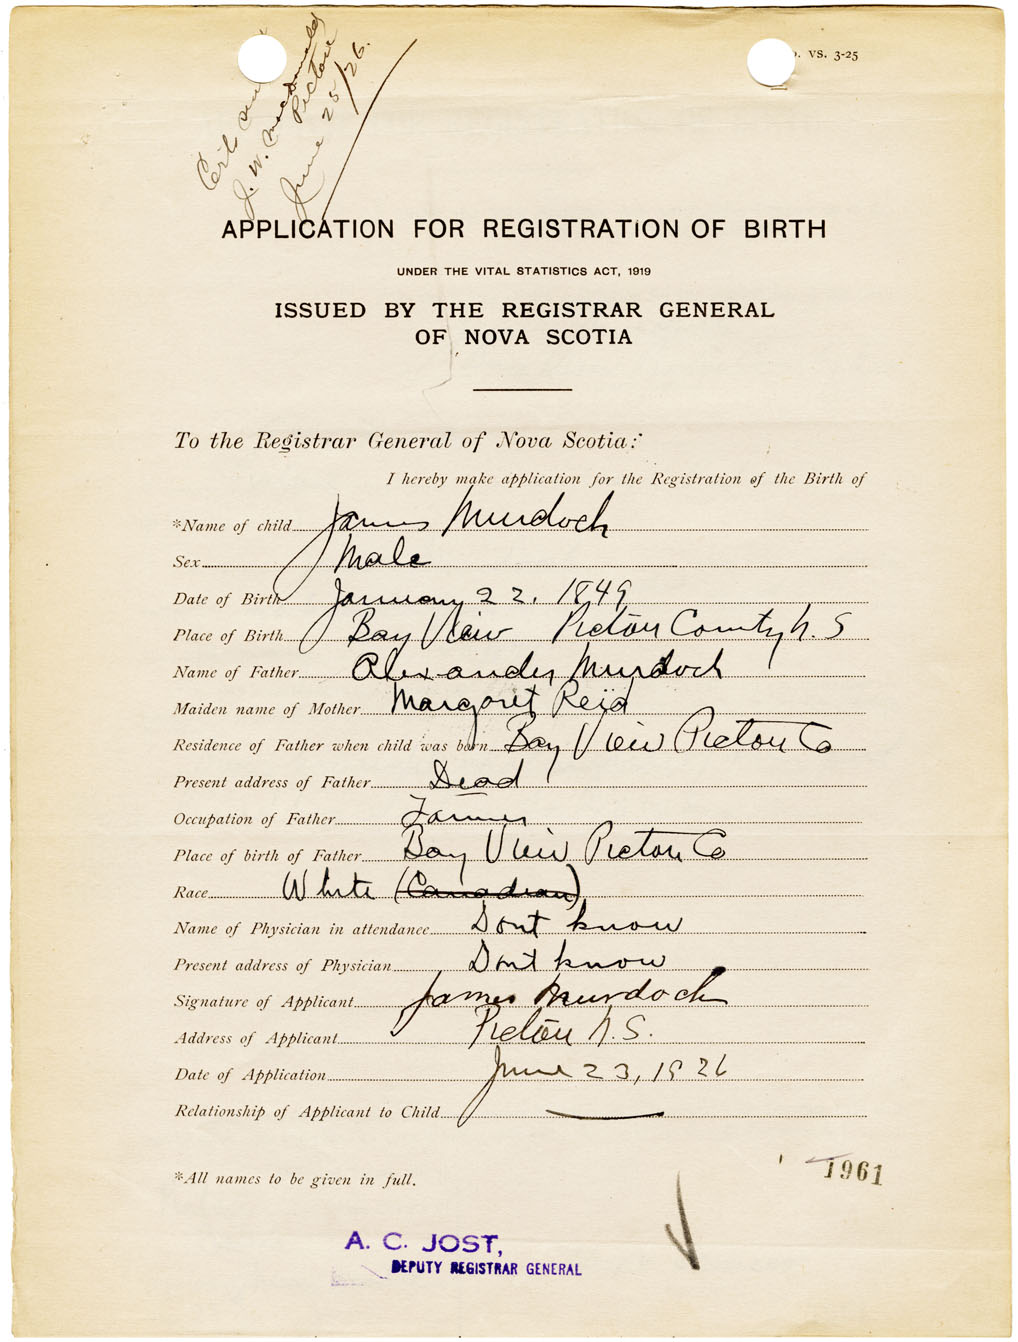 Cert
J. W. Macdonald
Pictou
June 25/26.
. VS. 3-25
APPLICATION FOR REGISTRATION OF BIRTH
UNDER THE VITAL STATISTICS ACT, 1919
ISSUED BY THE REGISTRAR GENERAL
OF NOVA SCOTIA
To the Registrar General of Nova Scotia:
I hereby make application for the Registration of the Birth of
*Name of child James Murdoch
Sex Male
Date of Birth January 22, 1849
Place of Birth Bay View Pictou County N. S
Name of Father Alexander Murdoch
Maiden name of Mother Margaret Reid
Residence of Father when child was born Bay View Pictou Co
Present address of Father Dead
Occupation of Father Farmer
Place of birth of Father Bay View Pictou Co
Race White (Canadian)
Name of Physician in attendance Dont know
Present address of Physician Dont know
Signature of Applicant James Murdoch
Address of Applicant Pictou N. S.
Date of Application June 23, 1926
Relationship of Applicant to Child
*All names to be given in full.
1961
A. C. JOST,
DEPUTY REGISTRAR GENERAL